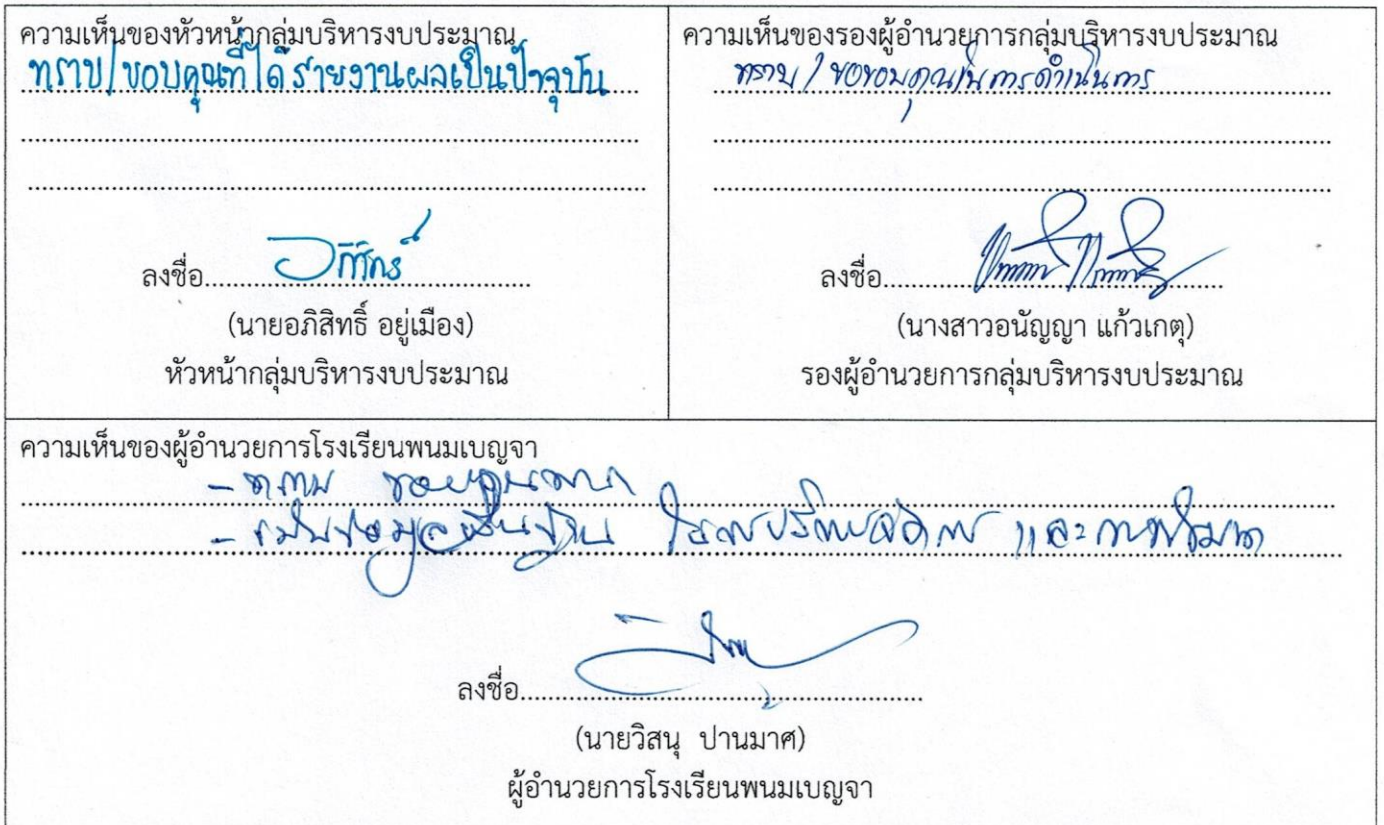 ความเห็นของหัวหน้ากลุ่มบริหารงบประมาณ
ทราบ/ขอบคุณที่ได้รายงานผลเป็นปัจจุบัน
ลงชื่อ
(นายอภิสิทธิ์ อยู่เมือง)
หัวหน้ากลุ่มบริหารงบประมาณ
ความเห็นของรองผู้อำนวยการกลุ่มบริหารงบประมาณ
ทราบ / ขอขอบคุณในการดำเนินการ
ลงชื่อ
(นางสาวอนัญญา แก้วเกตุ)
รองผู้อำนวยการกลุ่มบริหารงบประมาณ
ความเห็นของผู้อำนวยการโรงเรียนพนมเบญจา
- ทราบ ขอบคุณมาก
- เป็นข้อมูลพื้นฐาน ในการบริหารจัดการ และการพัฒนา
ลงชื่อ
(นายวิสนุ ปานมาศ)
ผู้อำนวยการโรงเรียนพนมเบญจา